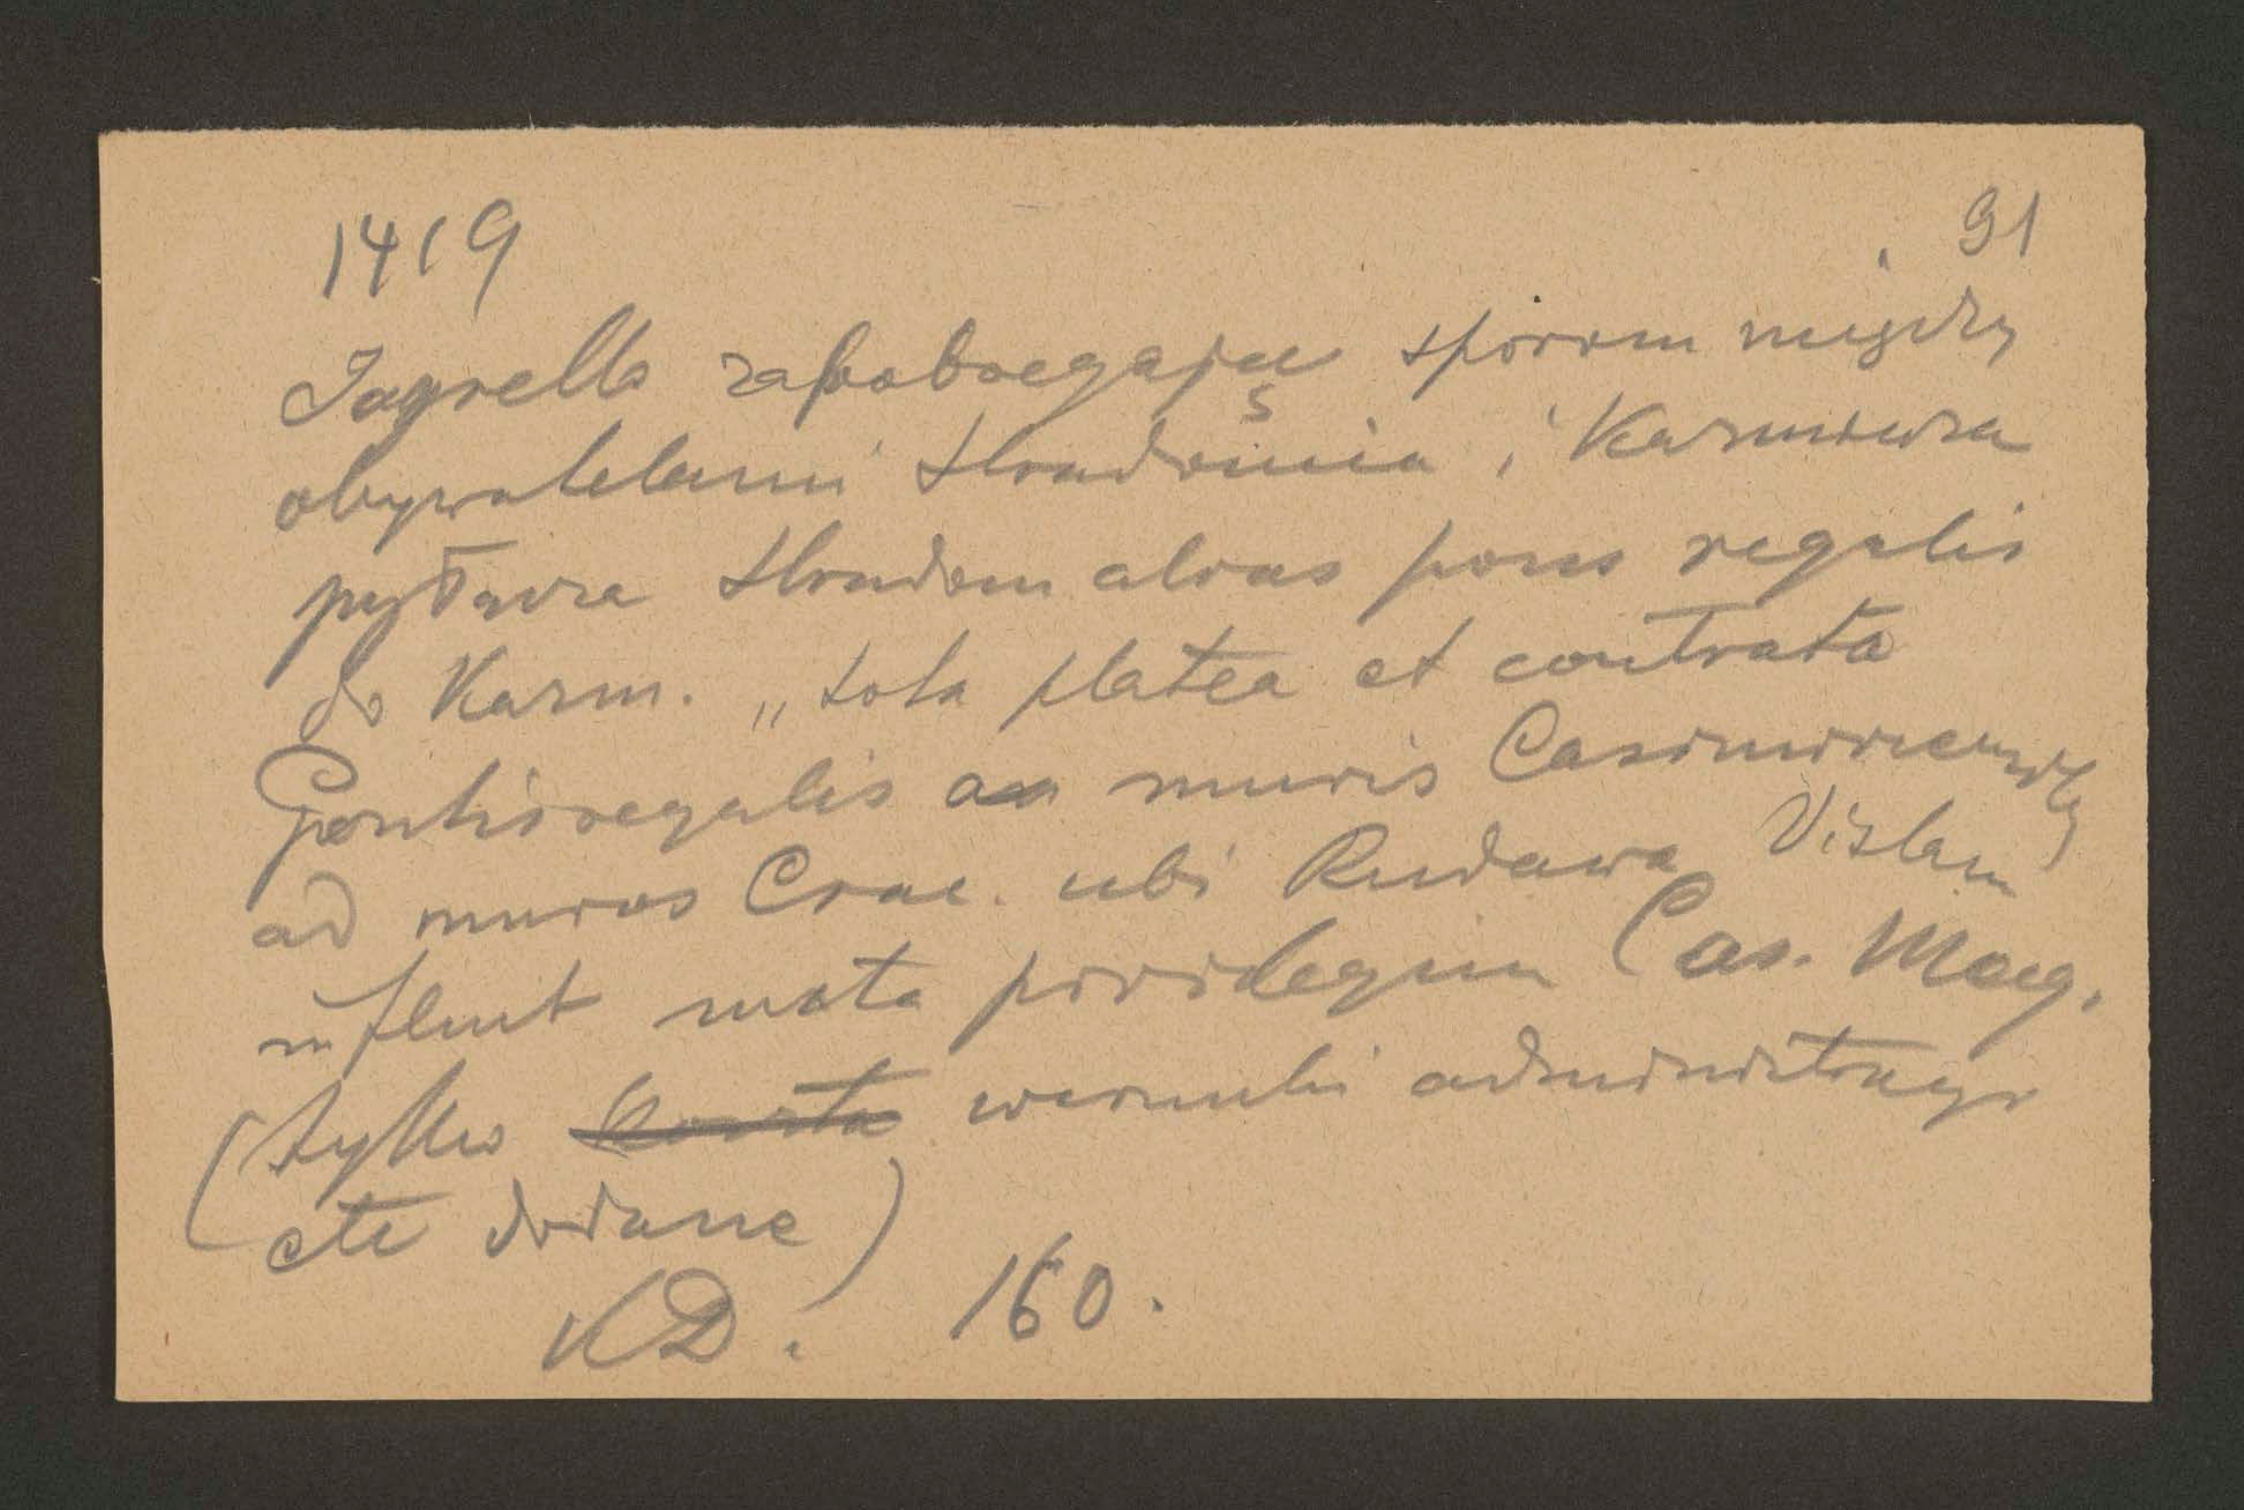 1419
91
Jagiełło zapobiegając sporom między
obywatelami Stradomia i Kazmierza
przyłącza Stradom alias pons regalis
do Kazm. „tota platea et contrata
Pontisregalis a muris Casimiriensib
ad muros Crac. ubi Rudawa Vislam
influit iuxta privilegium Cas. Mag.
(tylko warunki administracyj
etc dodane)
KD. 160.